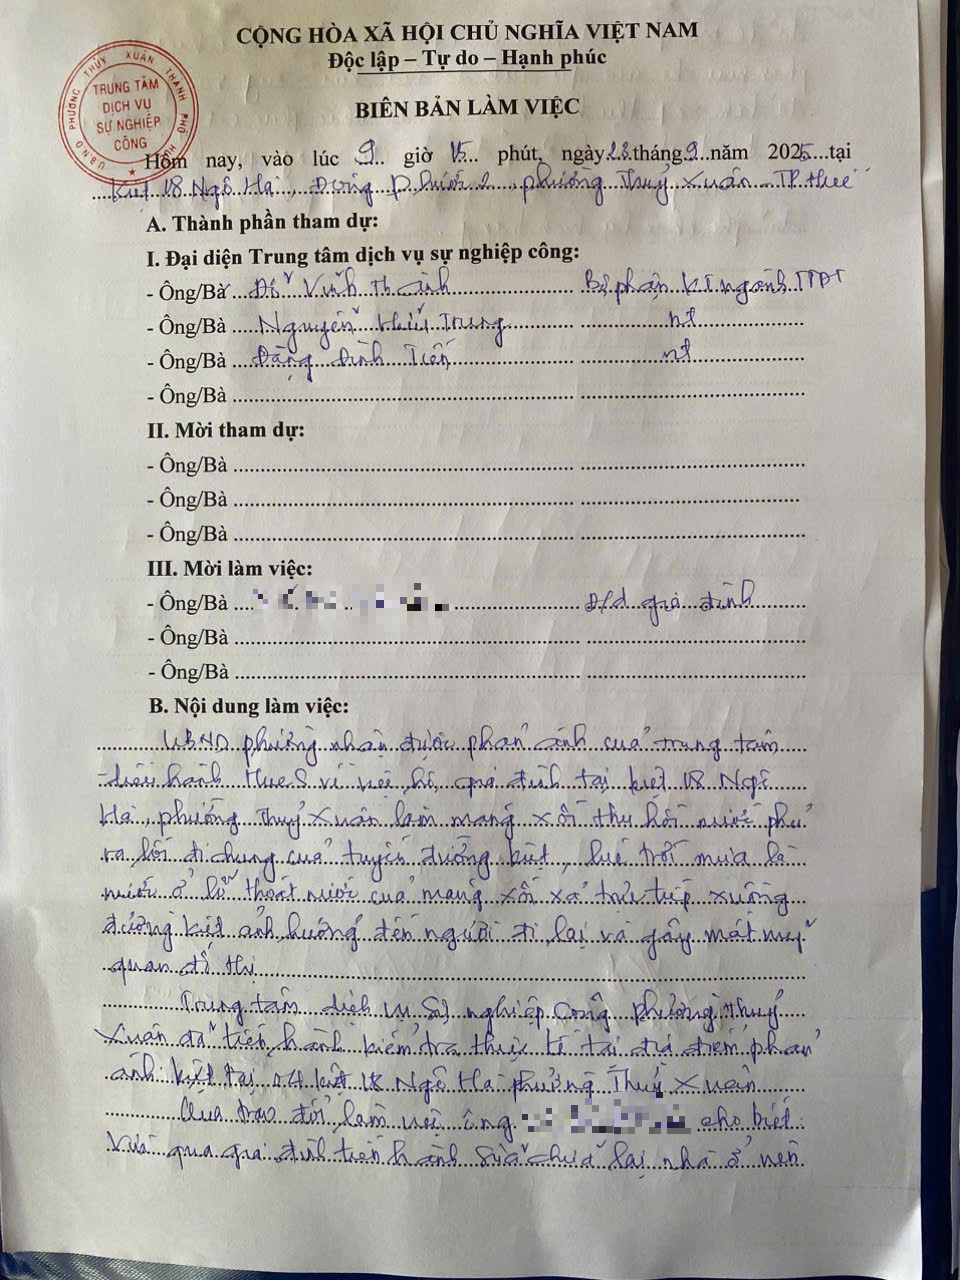 CỘNG HÒA XÃ HỘI CHỦ NGHĨA VIỆT NAM
Độc lập – Tự do – Hạnh phúc
U.B.N.D PHƯỜNG THỦY XUÂN THÀNH PHỐ HUẾ
TRUNG TÂM
DỊCH VỤ
SỰ NGHIỆP
CÔNG
BIÊN BẢN LÀM VIỆC
Hôm nay, vào lúc 9 giờ 15 phút, ngày 23 tháng 9 năm 2025 tại
Kiệt 18 Ngô Hà, phường Thuỷ Xuân - TP Huế
A. Thành phần tham dự:
I. Đại diện Trung tâm dịch vụ sự nghiệp công:
- Ông/Bà Đỗ Vĩnh Thành Bộ phận KT ngành TTĐT
- Ông/Bà Nguyễn Hữu Trung nt
- Ông/Bà Đặng Đình Tiến nt
- Ông/Bà
II. Mời tham dự:
- Ông/Bà
- Ông/Bà
- Ông/Bà
III. Mời làm việc:
- Ông/Bà Đ/d gia đình
- Ông/Bà
- Ông/Bà
B. Nội dung làm việc:
UBND phường nhận được phản ánh của trung tâm
điều hành HueS về việc hộ gia đình tại kiệt 18 Ngô
Hà, phường Thuỷ Xuân làm máng xối thu hồi nước phủ
ra lối đi chung của tuyến đường kiệt, lúc trời mưa là
nước ở lỗ thoát nước của máng xối xả trực tiếp xuống
đường kiệt ảnh hưởng đến người đi lại và gây mất mỹ
quan đô thị
Trung tâm dịch vụ Sự nghiệp Công phường Thuỷ
Xuân đã tiến hành kiểm tra thực tế tại địa điểm phản
ánh kiệt tại 04 kiệt 18 Ngô Hà phường Thuỷ Xuân
Qua trao đổi, làm việc ông cho biết
Vừa qua gia đình tiến hành sửa chữa lại nhà ở nên